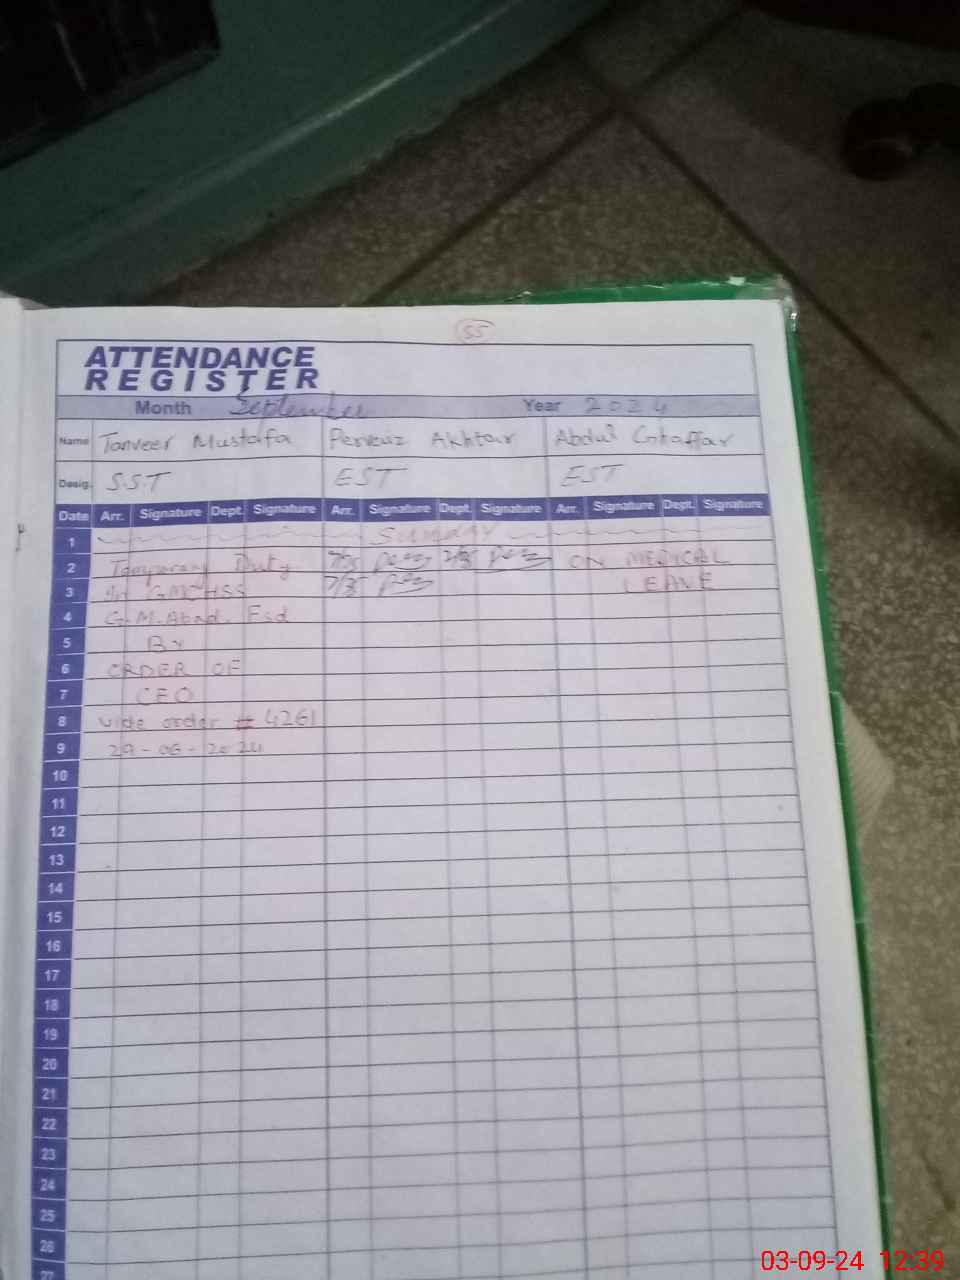 55
ATTENDANCE
REGISTER
Month September Year 2024
Name Tanveer Mustafa Perveiz Akhtar Abdul Ghaffar
Desig. S.S.T EST EST
Date Arr. Signature Dept. Signature Arr. Signature Dept. Signature Arr. Signature Dept. Signature
1 SUNDAY
2 Temporary Duty ON MEDICAL
3 LEAVE
4 G.M.Abad. Fsd
5 By
6 ORDER OF
7 CEO
8 vide order # 4261
9 29-06-2024
10
11
12
13
14
15
16
17
18
19
20
21
22
23
24
25
26
27
03-09-24 12:39